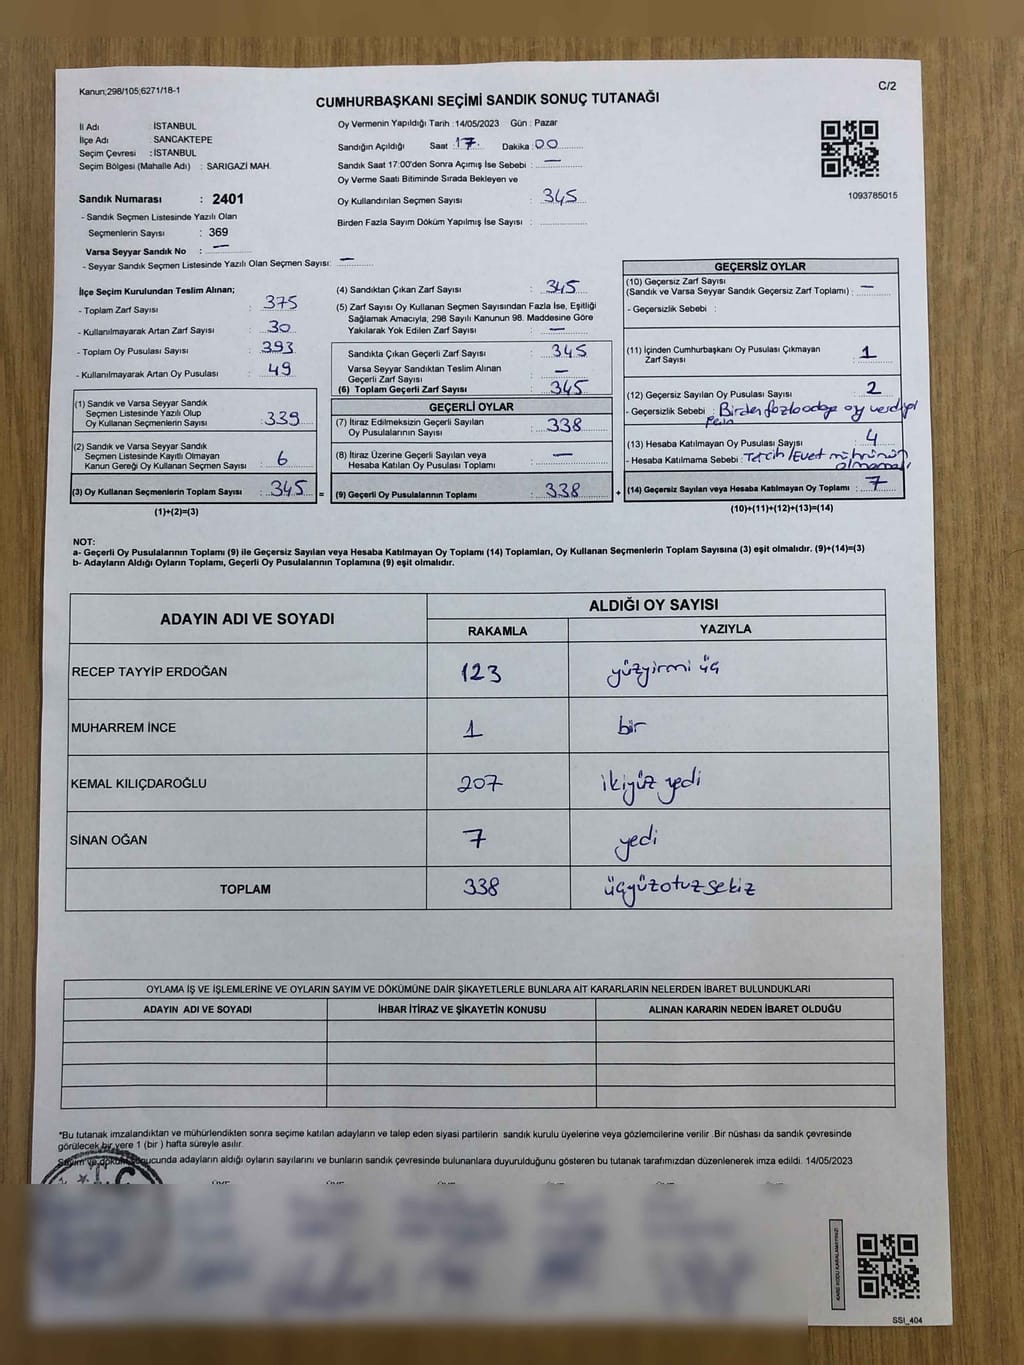 Kanun;298/105;6271/18-1
C/2
CUMHURBAŞKANI SEÇİMİ SANDIK SONUÇ TUTANAĞI
İl Adı : İSTANBUL
İlçe Adı : SANCAKTEPE
Seçim Çevresi : İSTANBUL
Seçim Bölgesi (Mahalle Adı) : SARIGAZİ MAH.
Sandık Numarası : 2401
- Sandık Seçmen Listesinde Yazılı Olan
Seçmenlerin Sayısı : 369
Varsa Seyyar Sandık No : —
- Seyyar Sandık Seçmen Listesinde Yazılı Olan Seçmen Sayısı: —
Oy Vermenin Yapıldığı Tarih :14/05/2023 Gün : Pazar
Sandığın Açıldığı Saat : 17 Dakika : 00
Sandık Saat 17:00'den Sonra Açımış İse Sebebi : —
Oy Verme Saati Bitiminde Sırada Bekleyen ve
Oy Kullandırılan Seçmen Sayısı : 345
Birden Fazla Sayım Döküm Yapılmış İse Sayısı :
1093785015
İlçe Seçim Kurulundan Teslim Alınan;
- Toplam Zarf Sayısı : 375
- Kullanılmayarak Artan Zarf Sayısı : 30
- Toplam Oy Pusulası Sayısı : 393
- Kullanılmayarak Artan Oy Pusulası : 49
(1) Sandık ve Varsa Seyyar Sandık
Seçmen Listesinde Yazılı Olup
Oy Kullanan Seçmenlerin Sayısı : 339
(2) Sandık ve Varsa Seyyar Sandık
Seçmen Listesinde Kayıtlı Olmayan
Kanun Gereği Oy Kullanan Seçmen Sayısı : 6
(3) Oy Kullanan Seçmenlerin Toplam Sayısı : 345 =
(1)+(2)=(3)
(4) Sandıktan Çıkan Zarf Sayısı : 345
(5) Zarf Sayısı Oy Kullanan Seçmen Sayısından Fazla İse, Eşitliği
Sağlamak Amacıyla, 298 Sayılı Kanunun 98. Maddesine Göre
Yakılarak Yok Edilen Zarf Sayısı : —
Sandıkta Çıkan Geçerli Zarf Sayısı : 345
Varsa Seyyar Sandıktan Teslim Alınan
Geçerli Zarf Sayısı : —
(6) Toplam Geçerli Zarf Sayısı : 345
GEÇERLİ OYLAR
(7) İtiraz Edilmeksizin Geçerli Sayılan
Oy Pusulalarının Sayısı : 338
(8) İtiraz Üzerine Geçerli Sayılan veya
Hesaba Katılan Oy Pusulası Toplamı : —
(9) Geçerli Oy Pusulalarının Toplamı : 338 +
GEÇERSİZ OYLAR
(10) Geçersiz Zarf Sayısı
(Sandık ve Varsa Seyyar Sandık Geçersiz Zarf Toplamı) : —
- Geçersizlik Sebebi :
(11) İçinden Cumhurbaşkanı Oy Pusulası Çıkmayan
Zarf Sayısı : 1
(12) Geçersiz Sayılan Oy Pusulası Sayısı : 2
- Geçersizlik Sebebi : Birden fazla adaya oy
(13) Hesaba Katılmayan Oy Pusulası Sayısı : 4
- Hesaba Katılmama Sebebi : Tercih/Evet mührünün
olmaması
(14) Geçersiz Sayılan veya Hesaba Katılmayan Oy Toplamı : 7
(10)+(11)+(12)+(13)=(14)
NOT:
a- Geçerli Oy Pusulalarının Toplamı (9) ile Geçersiz Sayılan veya Hesaba Katılmayan Oy Toplamı (14) Toplamları, Oy Kullanan Seçmenlerin Toplam Sayısına (3) eşit olmalıdır. (9)+(14)=(3)
b- Adayların Aldığı Oyların Toplamı, Geçerli Oy Pusulalarının Toplamına (9) eşit olmalıdır.
ADAYIN ADI VE SOYADI
ALDIĞI OY SAYISI
RAKAMLA YAZIYLA
RECEP TAYYİP ERDOĞAN 123 yüzyirmi üç
MUHARREM İNCE 1 bir
KEMAL KILIÇDAROĞLU 207 ikiyüz yedi
SİNAN OĞAN 7 yedi
TOPLAM 338 üçyüzotuzsekiz
OYLAMA İŞ VE İŞLEMLERİNE VE OYLARIN SAYIM VE DÖKÜMÜNE DAİR ŞİKAYETLERLE BUNLARA AİT KARARLARIN NELERDEN İBARET BULUNDUKLARI
ADAYIN ADI VE SOYADI İHBAR İTİRAZ VE ŞİKAYETİN KONUSU ALINAN KARARIN NEDEN İBARET OLDUĞU
*Bu tutanak imzalandıktan ve mühürlendikten sonra seçime katılan adayların ve talep eden siyasi partilerin sandık kurulu üyelerine veya gözlemcilerine verilir .Bir nüshası da sandık çevresinde
görülecek bir yere 1 (bir ) hafta süreyle asılır.
Sayım ve döküm sonucunda adayların aldığı oyların sayılarını ve bunların sandık çevresinde bulunanlara duyurulduğunu gösteren bu tutanak tarafımızdan düzenlenerek imza edildi. 14/05/2023
KARE KODU KARALAMAYINIZ!
SSI_404